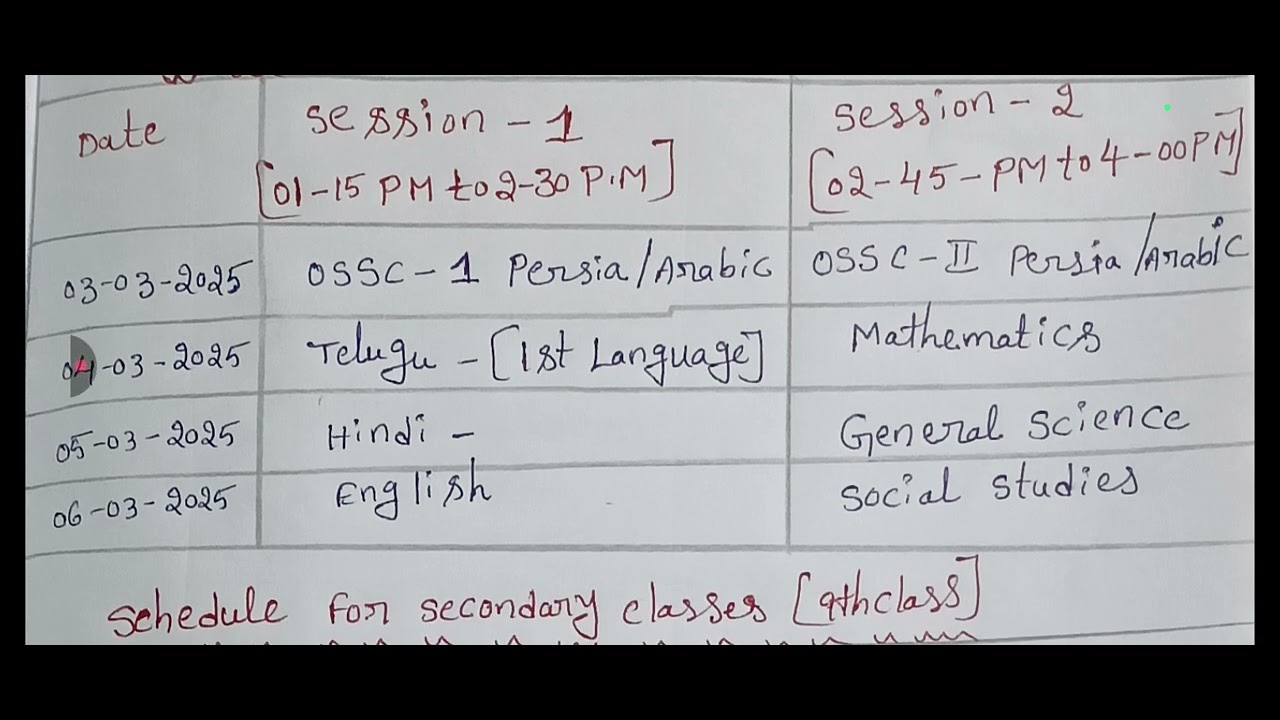 Date Session - 1 Session - 2
[01-15 PM to 2-30 P.M] [02-45-PM to 4-00PM]
03-03-2025 OSSC-1 Persia/Arabic OSSC-II Persia/Arabic
04-03-2025 Telugu - [1st Language] Mathematics
05-03-2025 Hindi - General Science
06-03-2025 English Social studies
Schedule for secondary classes [9thclass]